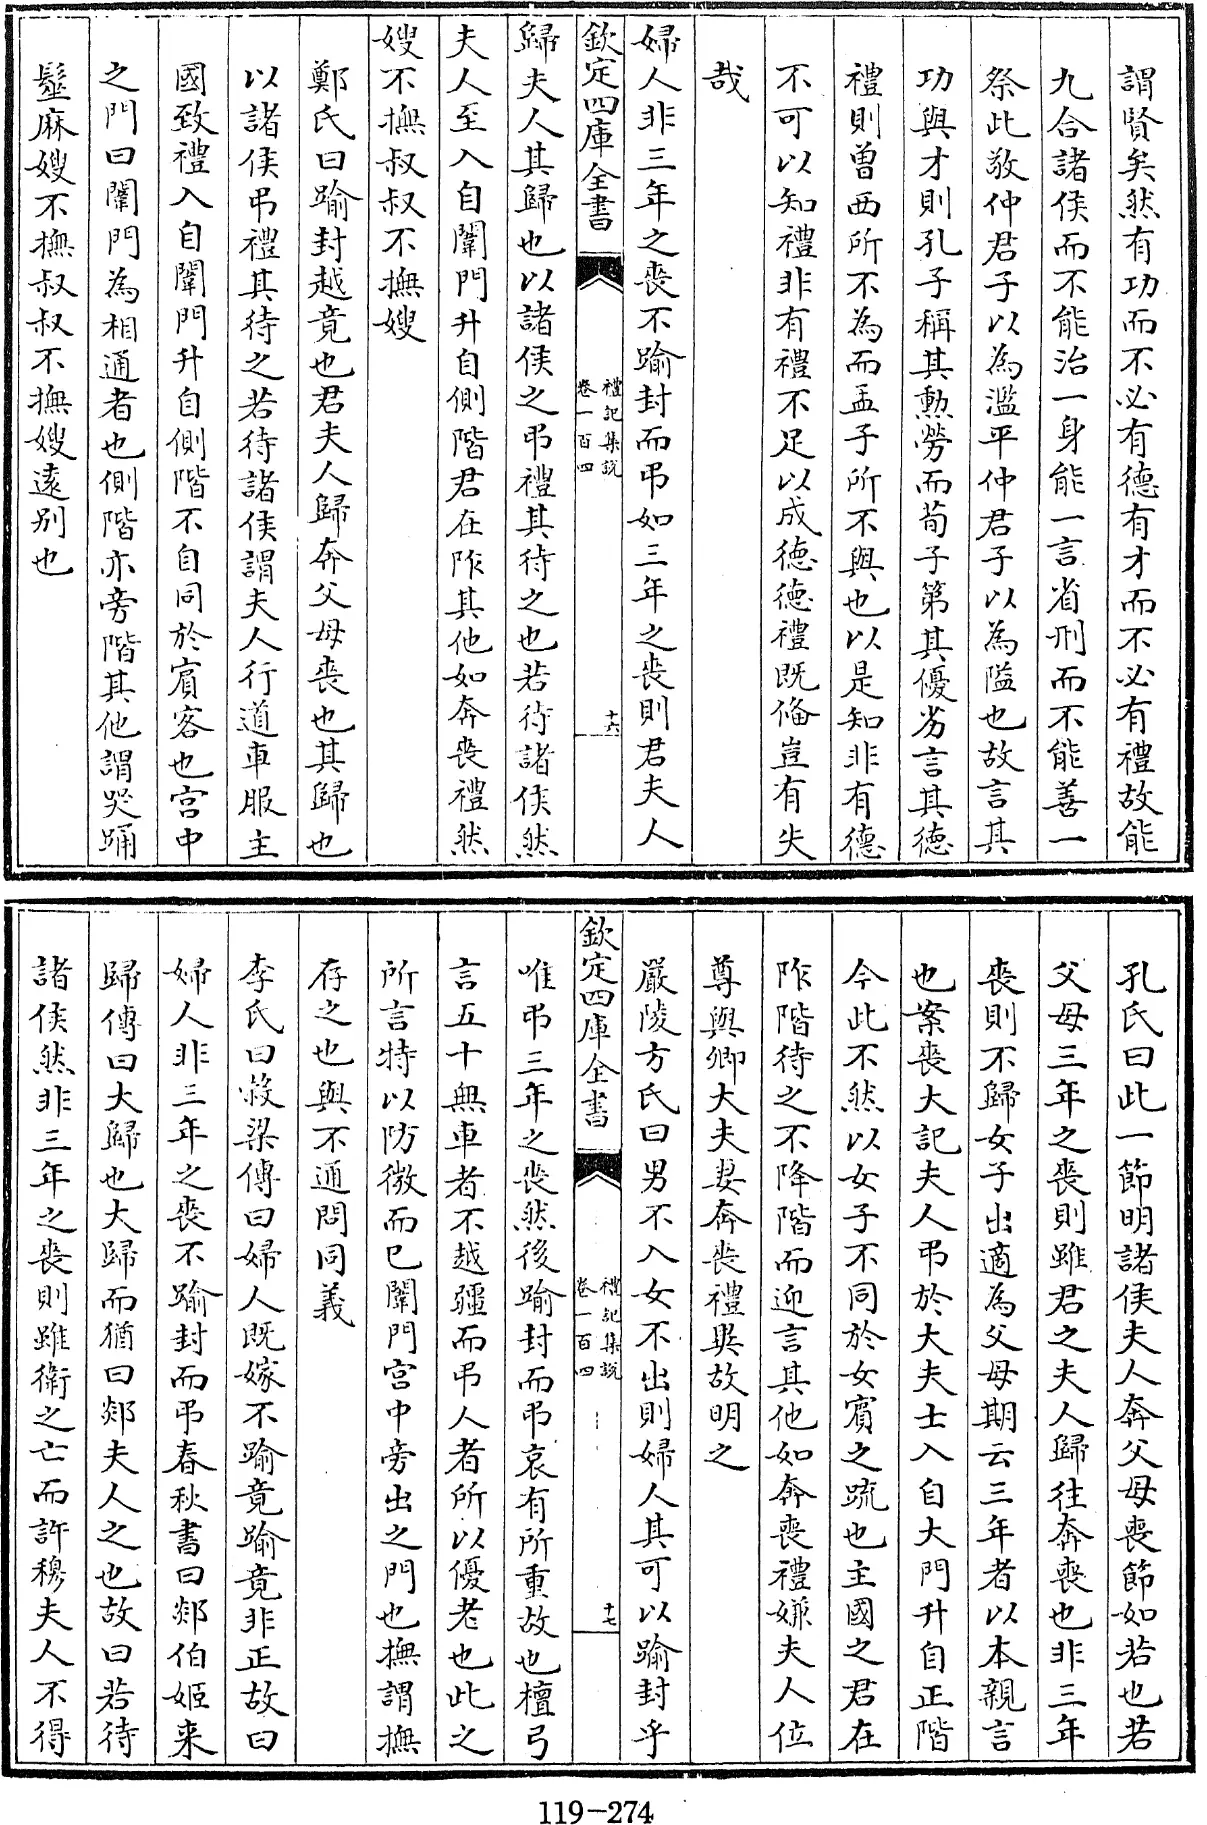 謂賢矣然有功而不必有德有才而不必有禮故能
九合諸侯而不能治一身能一言省刑而不能善一
祭此敬仲君子以為濫平仲君子以為隘也故言其
功與才則孔子稱其勲勞而荀子第其優劣言其德
禮則曾西所不為而孟子所不與也以是知非有德
不可以知禮非有禮不足以成德德禮既備豈有失
哉
婦人非三年之喪不踰封而弔如三年之喪則君夫人
欽定四庫全書
禮記集説
卷一百四
十六
歸夫人其歸也以諸侯之弔禮其待之也若待諸侯然
夫人至入自闈門升自側階君在阼其他如奔喪禮然
嫂不撫叔叔不撫嫂
鄭氏曰踰封越竟也君夫人歸奔父母喪也其歸也
以諸侯弔禮其待之若待諸侯謂夫人行道車服主
國致禮入自闈門升自側階不自同於賓客也宮中
之門曰闈門為相通者也側階亦旁階其他謂哭踊
髽麻嫂不撫叔叔不撫嫂逺別也
孔氏曰此一節明諸侯夫人奔父母喪節如若也若
父母三年之喪則雖君之夫人歸往奔喪也非三年
喪則不歸女子出適為父母期云三年者以本親言
也案喪大記夫人弔於大夫士入自大門升自正階
今此不然以女子不同於女賓之疏也主國之君在
阼階待之不降階而迎言其他如奔喪禮嫌夫人位
尊與卿大夫妻奔喪禮異故明之
嚴陵方氏曰男不入女不出則婦人其可以踰封乎
欽定四庫全書
禮記集説
卷一百四
十七
唯弔三年之喪然後踰封而弔哀有所重故也檀弓
言五十無車者不越疆而弔人者所以優老也此之
所言特以防微而已闈門宮中旁出之門也撫謂撫
存之也與不通問同義
李氏曰榖梁傳曰婦人既嫁不踰竟踰竟非正故曰
婦人非三年之喪不踰封而弔春秋書曰郯伯姬来
歸傳曰大歸也大歸而猶曰郯夫人之也故曰若待
諸侯然非三年之喪則雖衛之亡而許穆夫人不得
119-274